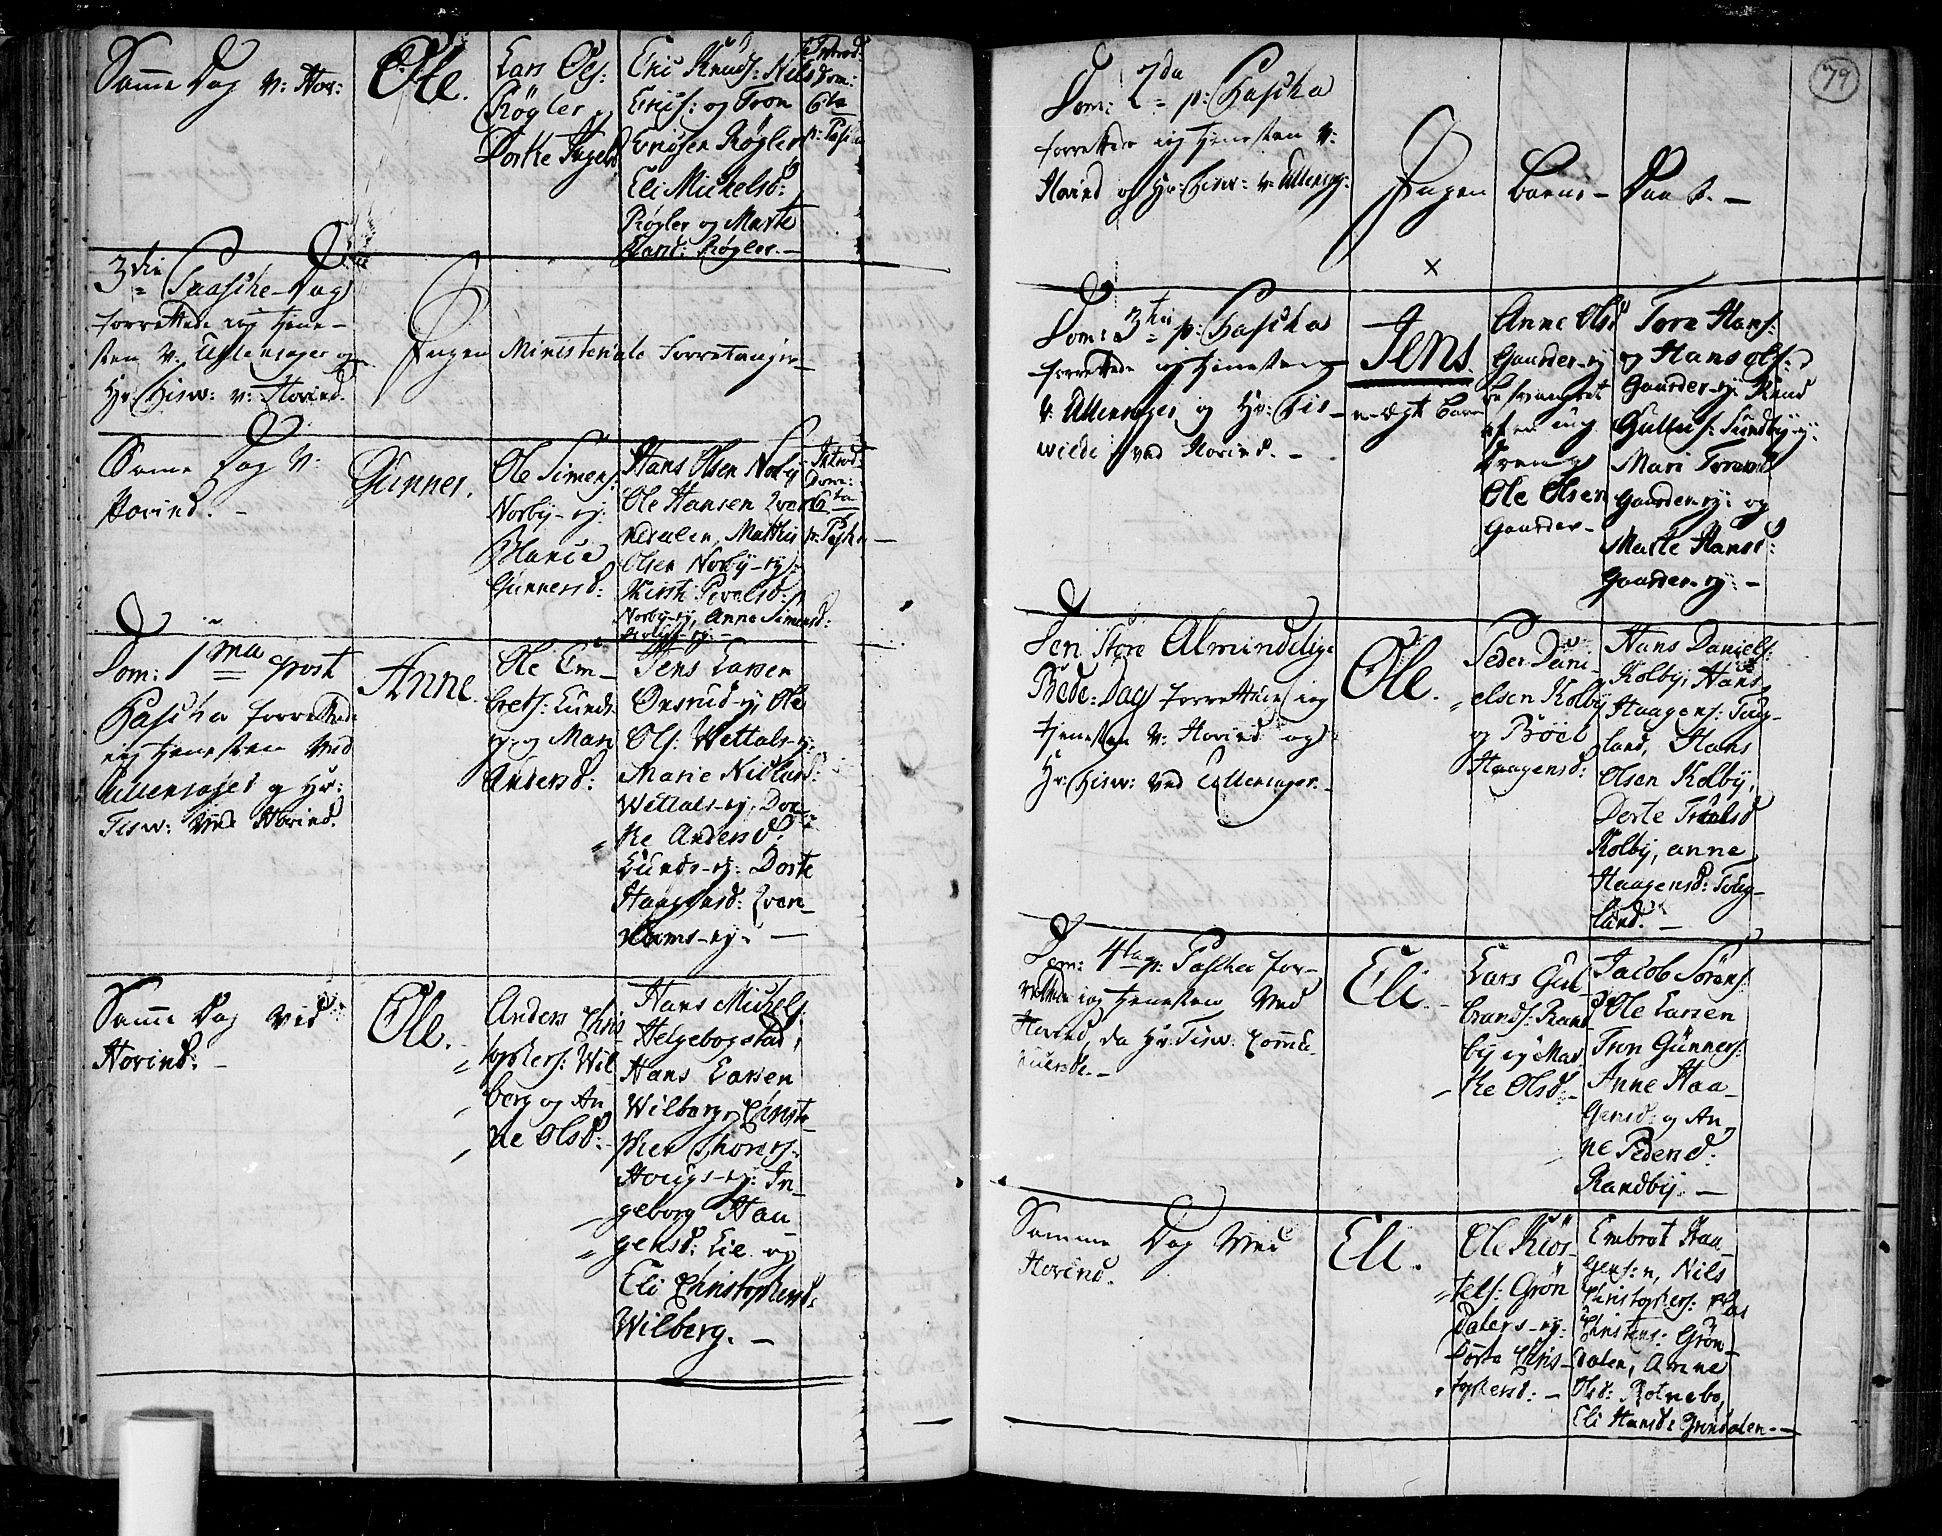 Samme Dag v: Hov:
Ole.
Lars Ols:
Røgler
Dorthe Ingeb
Eric Knuds: Nils
Erics: og Tron
Ericsen Røgler
Eli Michelsd:
Røgler og Marte
Hansd: Røgler. –
Introd:
Dom:
6ta
p: Pascha
3die Paaske-Dag
forrettede ieg Tiene-
sten v: Ullensager og
Hr: Tisw: v: Hovind.
Ingen Ministeriale Forretninger
Samme Dag v:
Hovind. –
Gunner.
Ole Simens:
Norby-ey:
Marie
Gunnersd:
Hans Olsen Norby
Ole Hansen Qver
nedalen, Mathis
Olsen Norby-ey:
Kirsti
Norby-ey, Anne Simensd:
Introd:
Dom:
6ta
p: Pascha
Dom: 1ma post
Pascha forrettede
ieg Tienesten ved
Ullensager og Hr:
Tisw: ved Hovind.
Anne
Ole Em-
brets: Lunds
ey: og Mari
Andersd:
Jens Larsen
Onsrud-ey, Ole
Ols: Wettals-ey
Marie Nielsd:
Wettals-ey, Dor-
the Andersd:
Lunds-ey: Dorte
Haagensd: Qven-
-ey. –
Samme Dag ved
Hovind: –
Ole.
Anders Chris
tophers: Wil
berg og An
ne Olsd:
Hans Michels:
Helgebogstad,
Hans Larsen
Wilberg, Christo-
pher Thores:
Hougs-ey: In-
geborg Haa
gensd: Lie og
Eli Christophersd:
Wilberg. –
79
Dom: 2da p: Pascha
forrettede ieg Tienesten v:
Hovind og Hr: Tisw: v: Ullensag:
Ingen Barne- Daab. –
Dom: 3tia p: Pascha
forrettede ieg Tienesten
v: Ullensager og Hr: Tis-
wilde ved Hovind. –
×
Jens.
u-ægte Barn
Anne Olsd
Gaarder-ey
besvangret
af en ung
Dreng
Ole Olsen
Gaarder-
Tore Hans:
og Hans Ols:
Gaarder-ey Knud
Gulbs: Sundby-ey:
Mari
Gaarder-ey: og
Marte Hansd:
Gaarder-ey: –
Den Store Almindelige
Bede-Dag forrettede ieg
Tienesten v: Hovind og
Hr: Tisw: ved Ullensager.
Ole.
Peder Dani-
elsen Kolby
og Böel
Haagensd:
Hans Daniels:
Kolby, Hans
Haagens: Tug-
land, Hans
Olsen Kolby,
Dorte
Kolby, Anne
Haagensd: Tug-
land. –
Dom: 4ta p: Pascha for-
rettede ieg Tienesten ved
Hovind, da Hr: Tisw: Commu-
nicerede. –
Eli.
Lars Gul
brands: Rand
by og Mar
the Olsd:
Jacob Sörens:
Ole Larsen
Tron Gunners:
Anne Haa
gensd: og An
ne Pedersd:
Randby. –
Samme Dag ved
Hovind.
Eli.
Ole Kiös
tels: Grön
dalers-ey:
Dorte Chris-
tophersd: –
Embret Haa
gens:n, Nils
Christophers:
Christens: Grön-
dalen, Anne
Olsd: Rotnebo,
Eli Hansd: Gröndalen. –